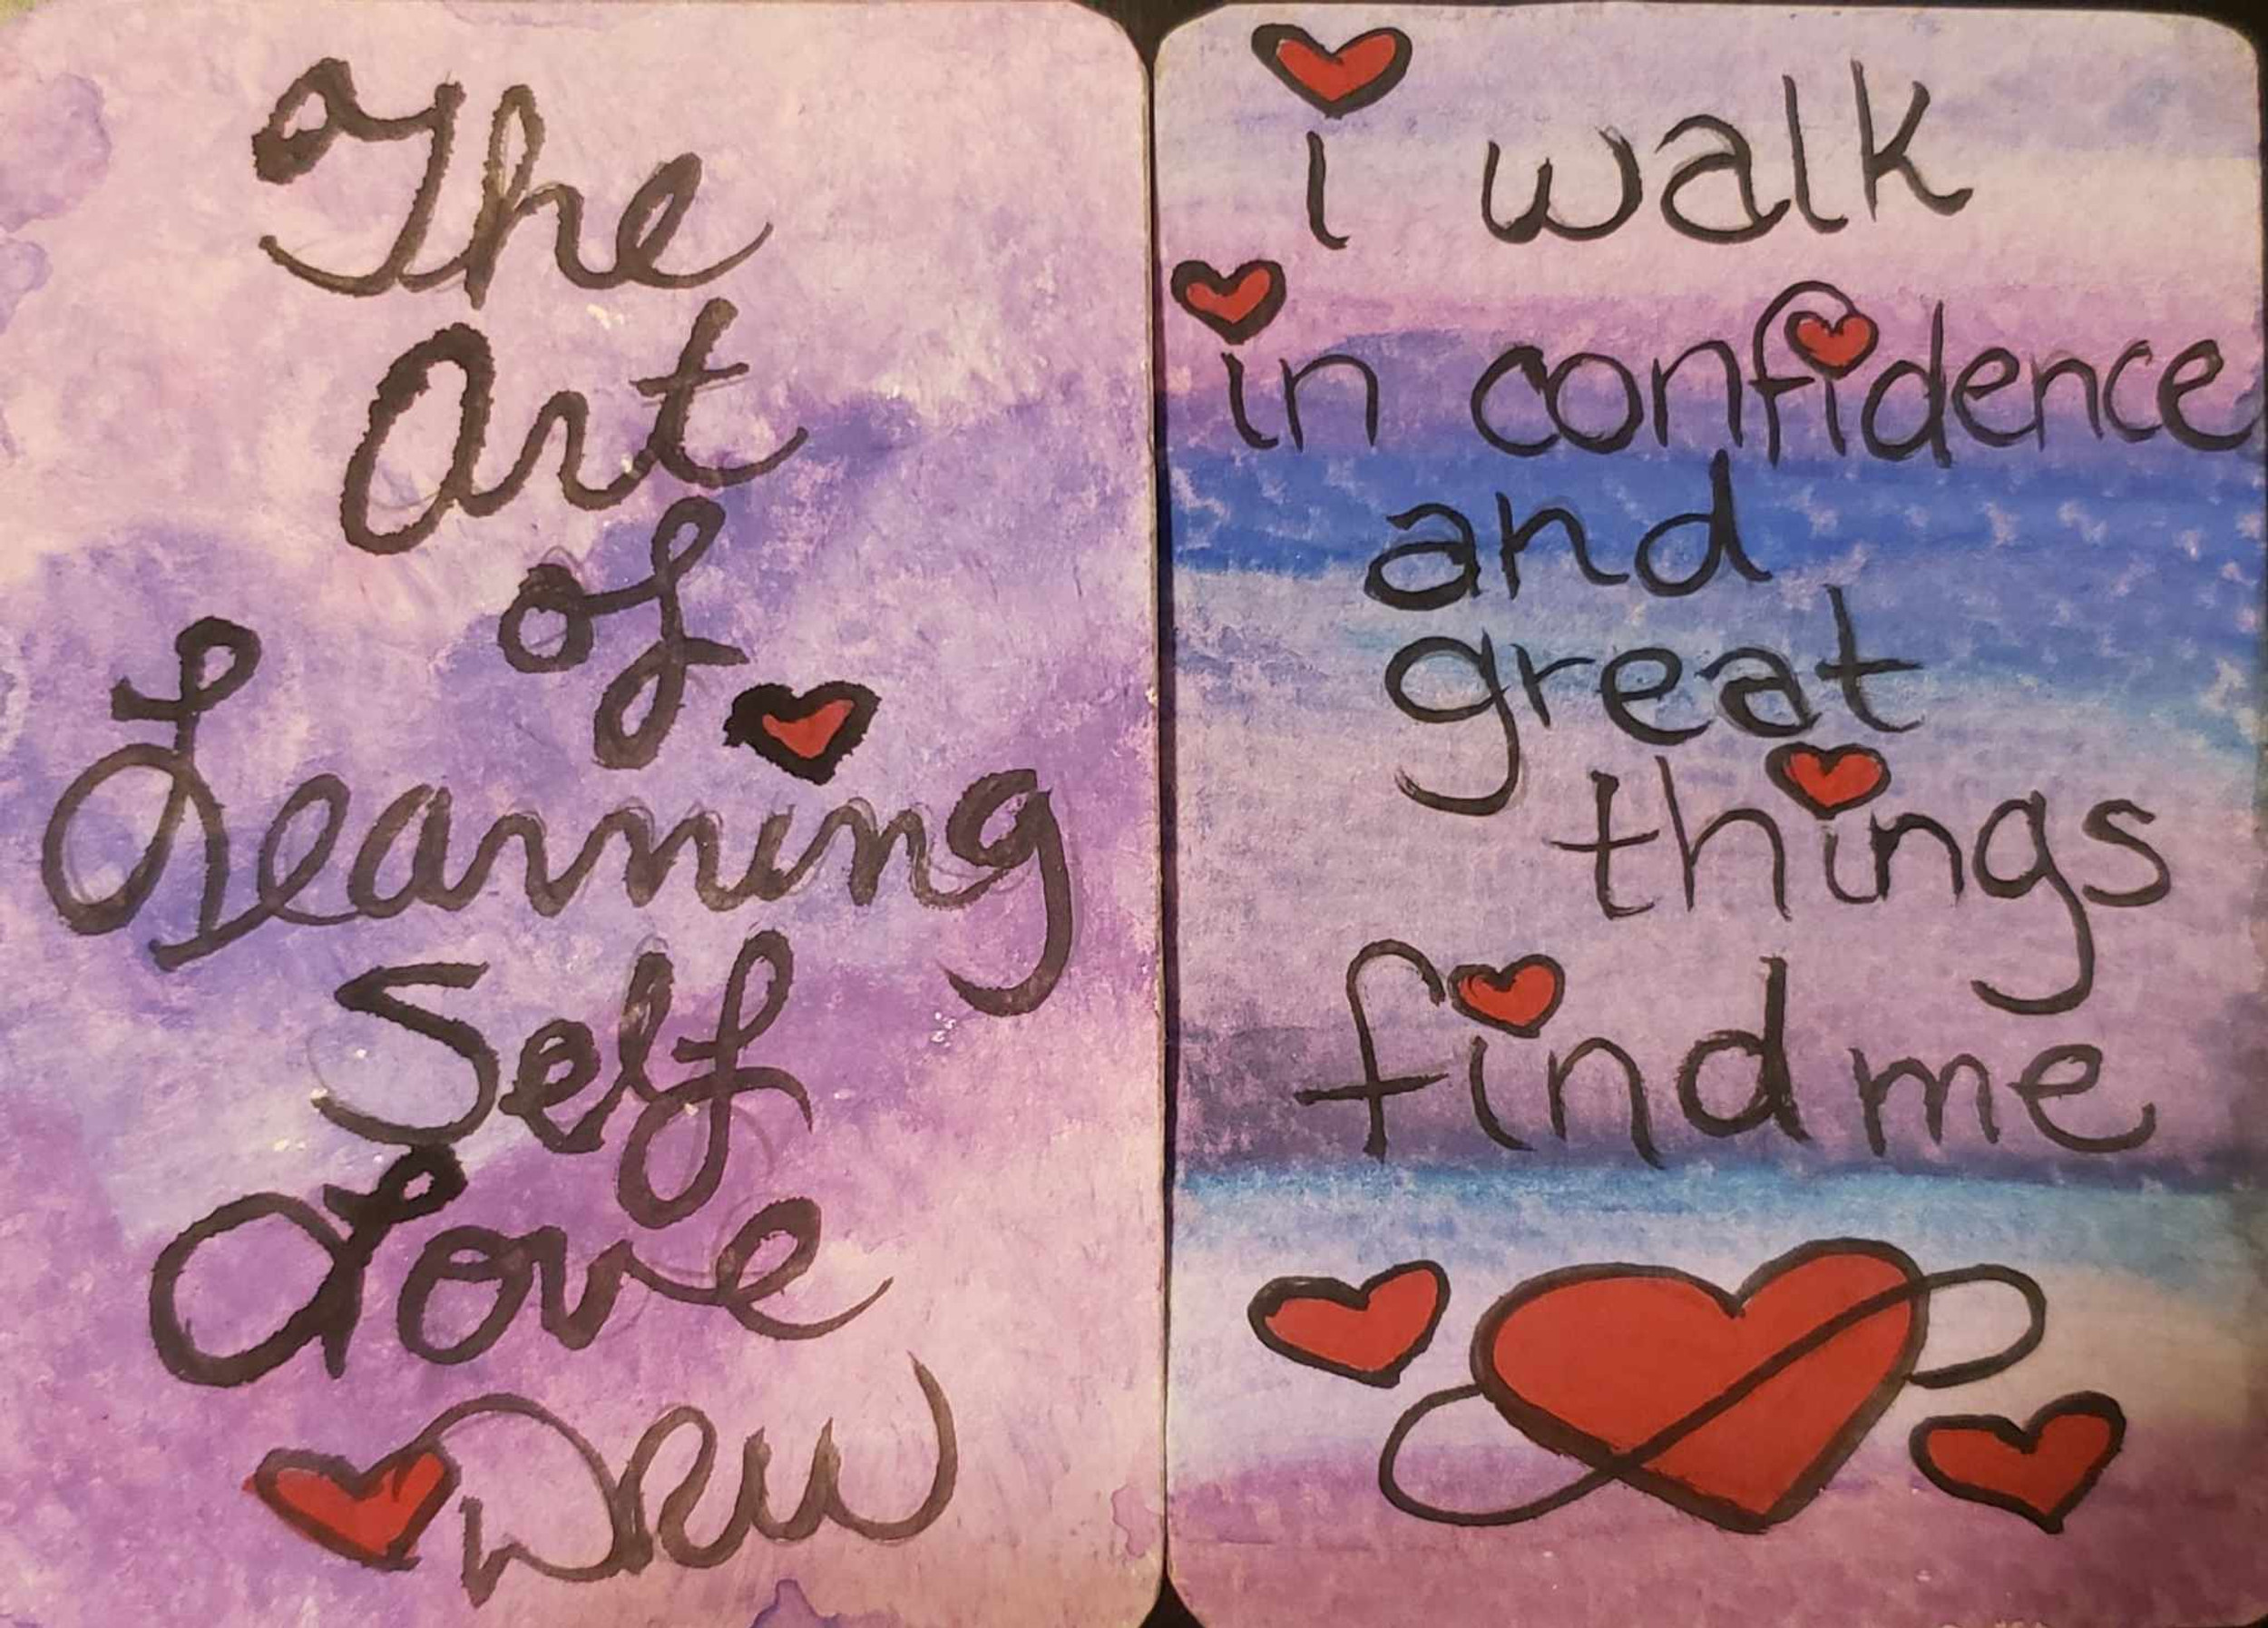 The
Art
of
Learning
Self
Love
DRW
i walk
in confidence
and
great
things
find me